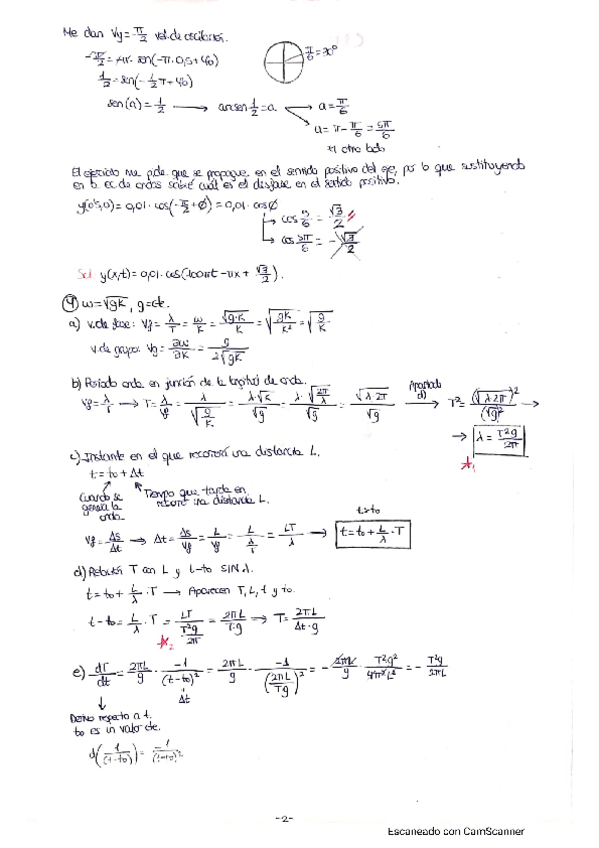 Me dan Vy = π/2 vel. de oscilación.
-π/2 = -π · sen(-π · 0,5 + φ0)
π/6 = 30°
1/2 = sen(-1/2 π + φ0)
sen(a) = 1/2 → arcsen 1/2 = a → a = π/6
a = π - π/6 = 5π/6
El ejercicio me pide que se propague en el sentido positivo del eje, por lo que sustituyendo
en la ec. de ondas sabré cuál es el desfase en el sentido positivo.
y(0'5,0) = 0,01 · cos(-π/2 + ϕ) = 0,01 · cosϕ
cos π/6 = √3/2
cos 5π/6 = -√3/2
Sol y(x,t) = 0,01 · cos(100πt - πx + √3/2).
4 ω = √gK, g = cte.
a) v. de fase: Vf = λ/T = ω/K = √g·K/K = √(gK/K²) = √(g/K)
v. de grupo: Vg = ∂ω/∂K = g/2√gK
b) Periodo onda en función de la longitud de onda.
Vf = λ/T → T = λ/Vf = λ/√(g/K) = λ·√K/√g = λ·√(2π/λ)/√g = √λ·2π/√g → Apartado d) → T² = (√λ·2π)²/(√g)² →
→ λ = T²g/2π
*1
c) Instante en el que recorrerá una distancia L.
t = t0 + Δt
Cuando se genera la onda.
Tiempo que tarda en recorrer una distancia L.
t>t0
Vf = Δs/Δt → Δt = Δs/Vf = L/Vf = L/(λ/T) = LT/λ → t = t0 + L/λ · T
d) Relación T con L y t-t0 SIN λ.
t = t0 + L/λ · T → Aparecen T, L, t y t0.
t - t0 = L/λ · T = LT/(T²g/2π) = 2πL/T·g → T = 2πL/Δt·g
*2
e) dT/dt = 2πL/g · -1/(t-t0)² = 2πL/g · -1/(2πL/Tg)² = -2πL/g · T²g²/4π²L² = - T²g/2πL
Δt
Derivo respecto a t.
t0 es un valor cte.
d(1/(t-t0)) = -1/(t-t0)²
-2-
Escaneado con CamScanner